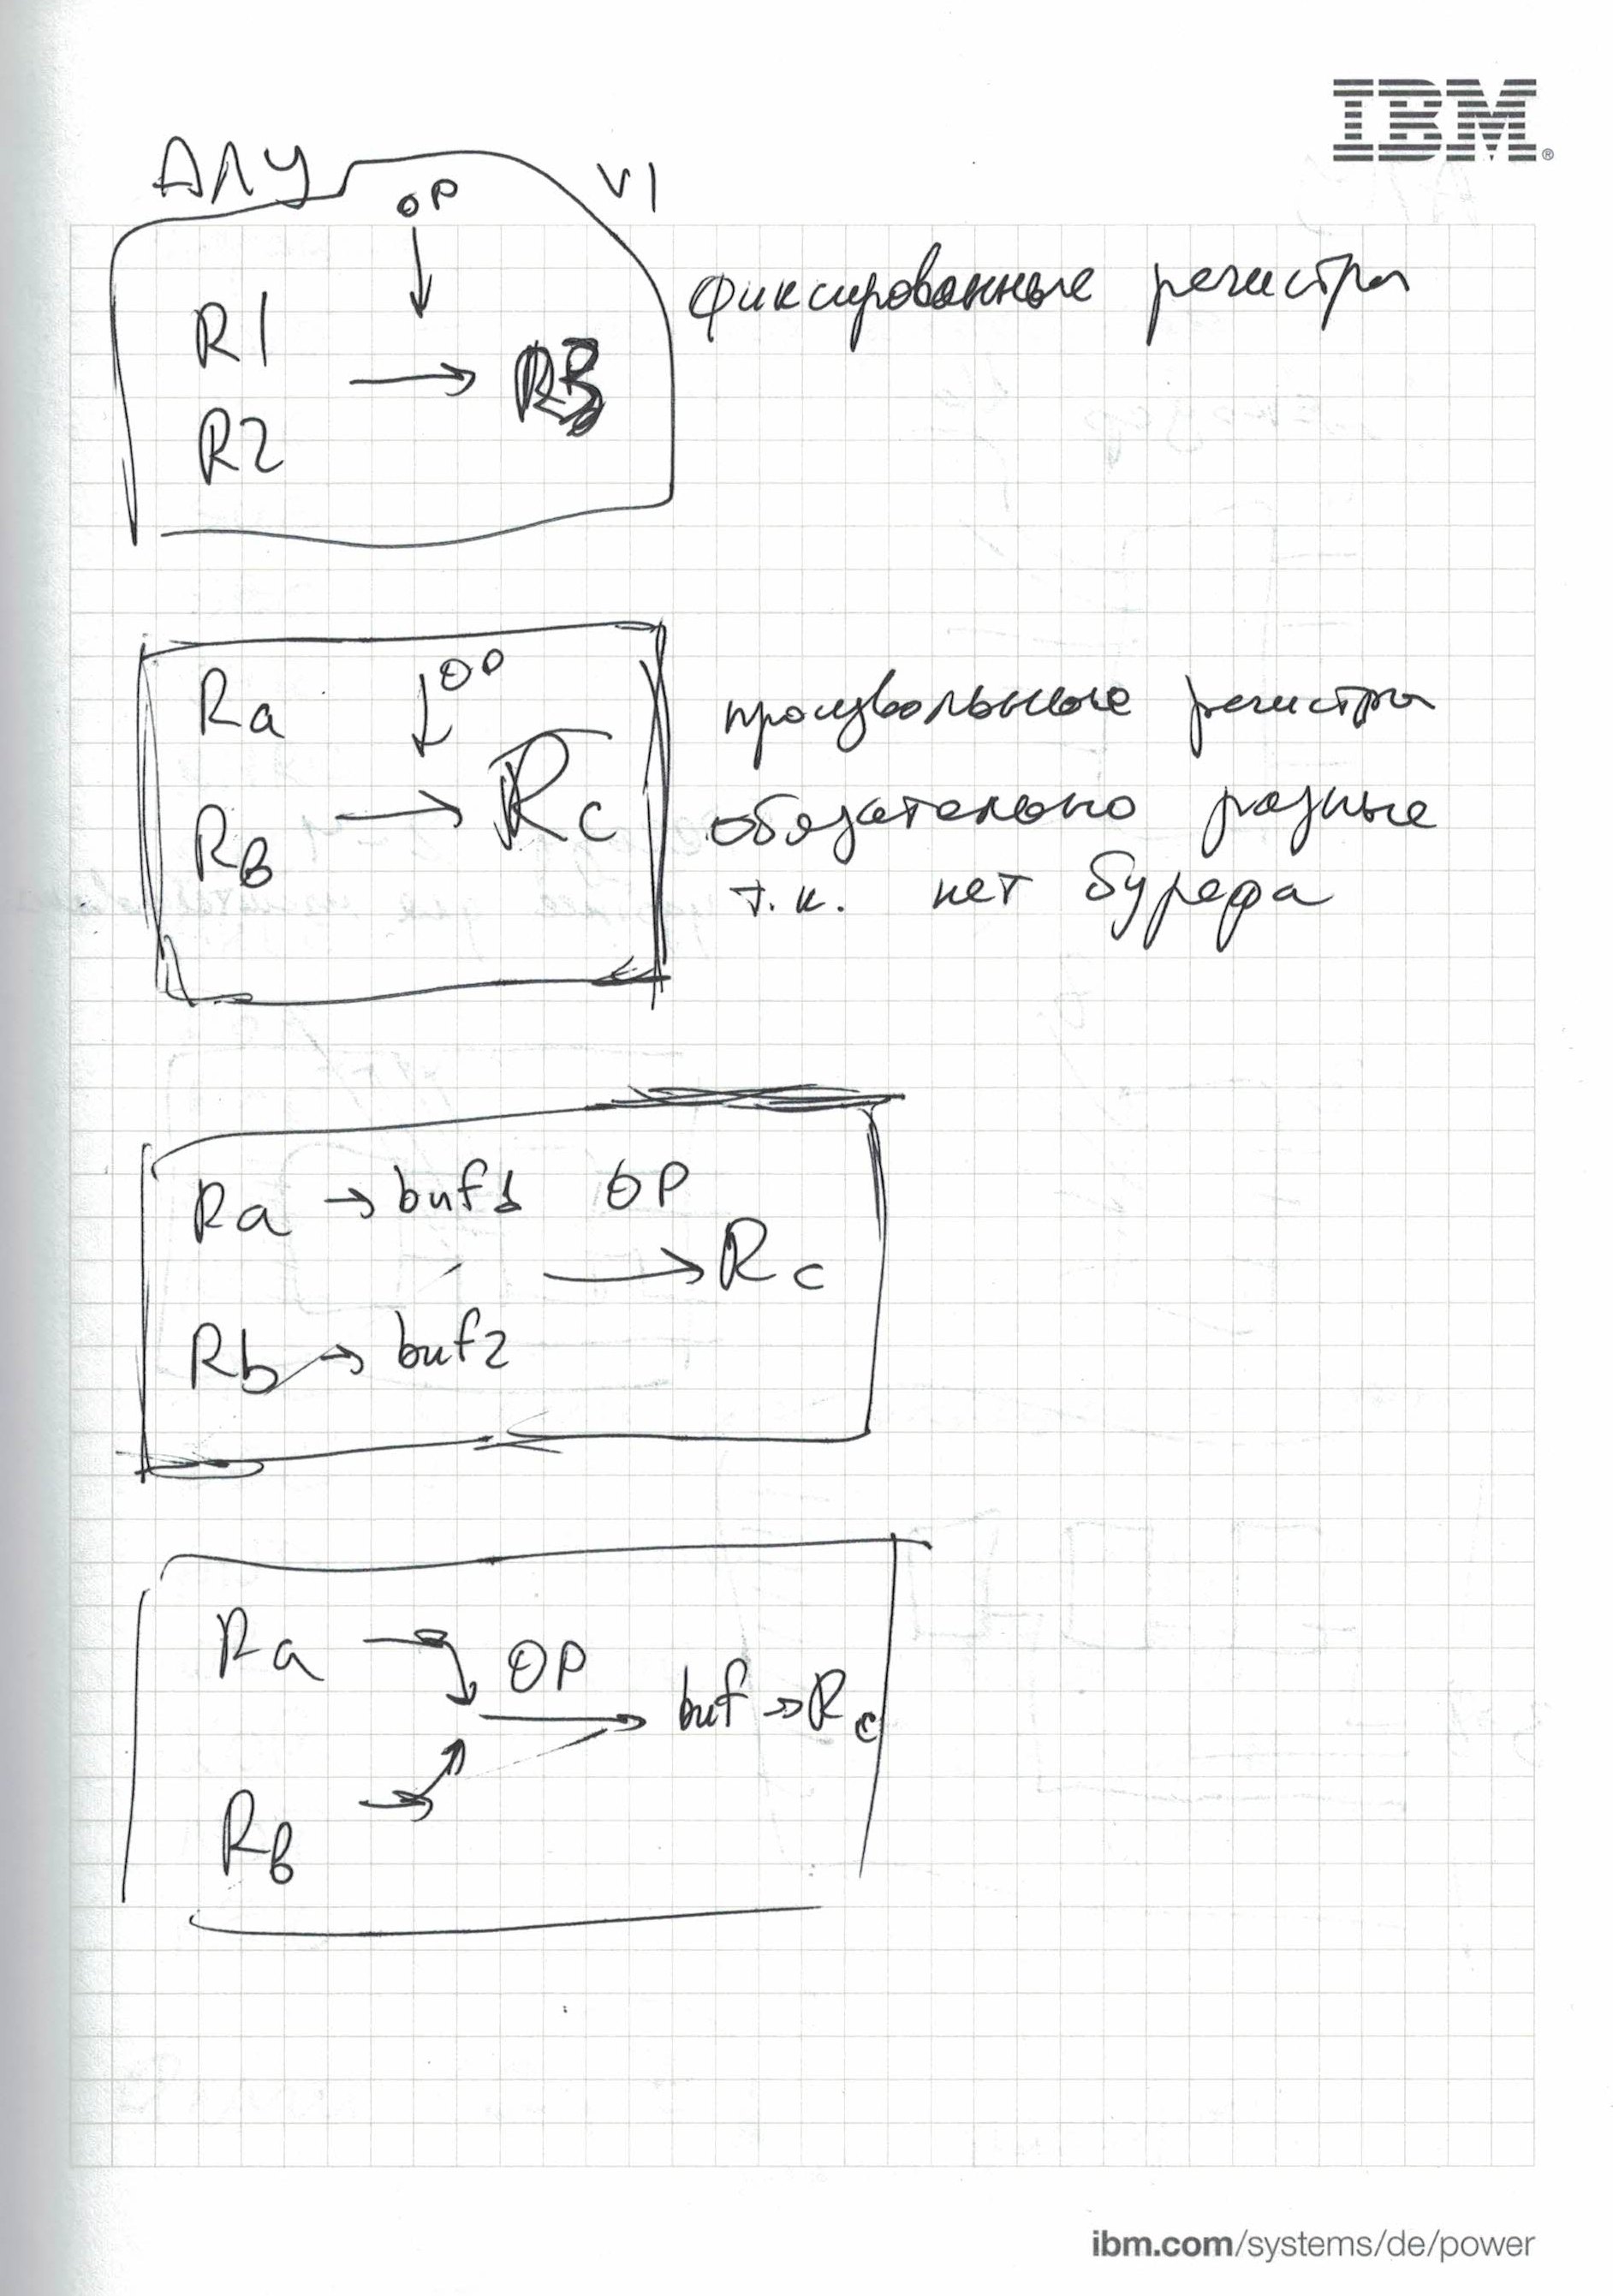 IBM
АЛУ
V1
OP
R1
→ R3
R2
фиксированные регистры
Ra
↓ OP
→ Rc
Rв
произвольные регистры
обязательно разные
т.к. нет буфера
Ra → buf1 OP
→ Rc
Rb → buf2
Ra
OP
→ buf → Rc
Rв
ibm.com/systems/de/power